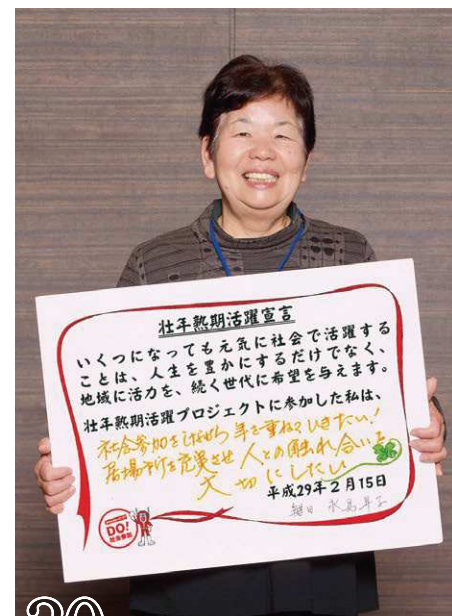 壮年熟期活躍宣言
いくつになっても元気に社会で活躍する
ことは、人生を豊かにするだけでなく、
地域に活力を、続く世代に希望を与えます。
壮年熟期活躍プロジェクトに参加した私は、
社会参加をしながら 年を重ねていきたい!
居場所を充実させ 人との触れ合いを
大切にしたい
平成29年2月15日
DO!
社会参加
20